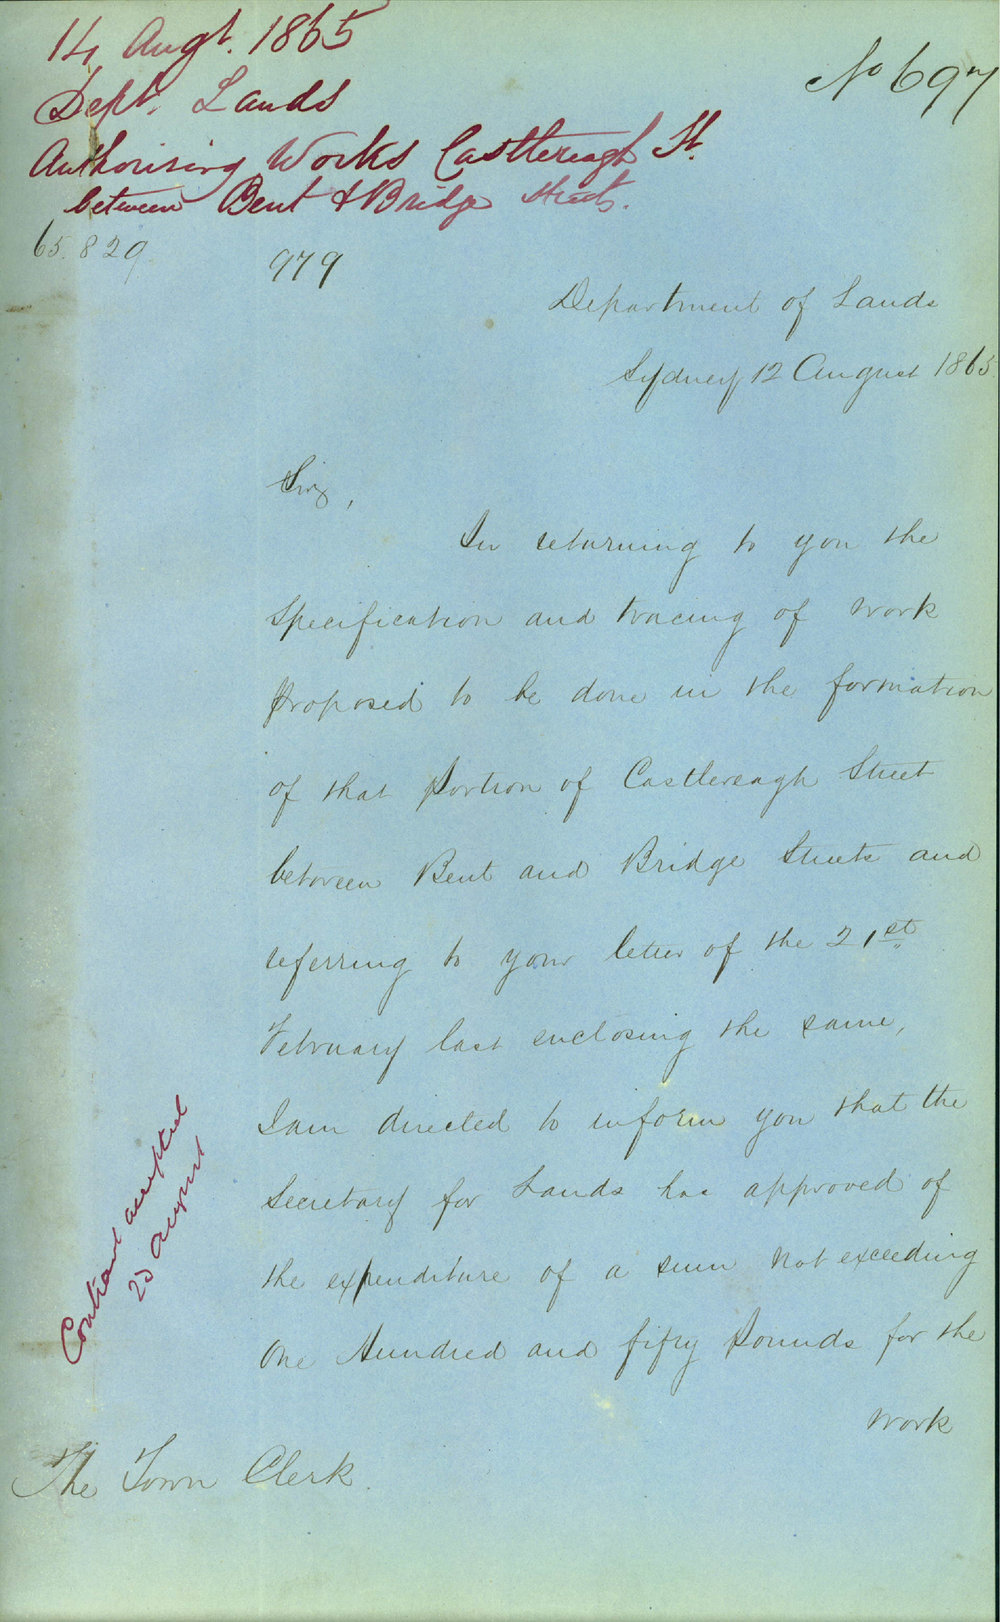 14 Augt. 1865
No 697
Dept. Lands
Authorising Works Castlereagh St.
between Bent & Bridge Streets.
65.829.
979
Department of Lands
Sydney 12 August 1865
Sir,
In returning to you the
Specification and tracing of work
proposed to be done in the formation
of that portion of Castlereagh Street
between Bent and Bridge Streets and
referring to your letter of the 21st
February last enclosing the same,
I am directed to inform you that the
Secretary for Lands has approved of
the expenditure of a sum not exceeding
One Hundred and fifty Pounds for the
work
Contract accepted
August
The Town Clerk.